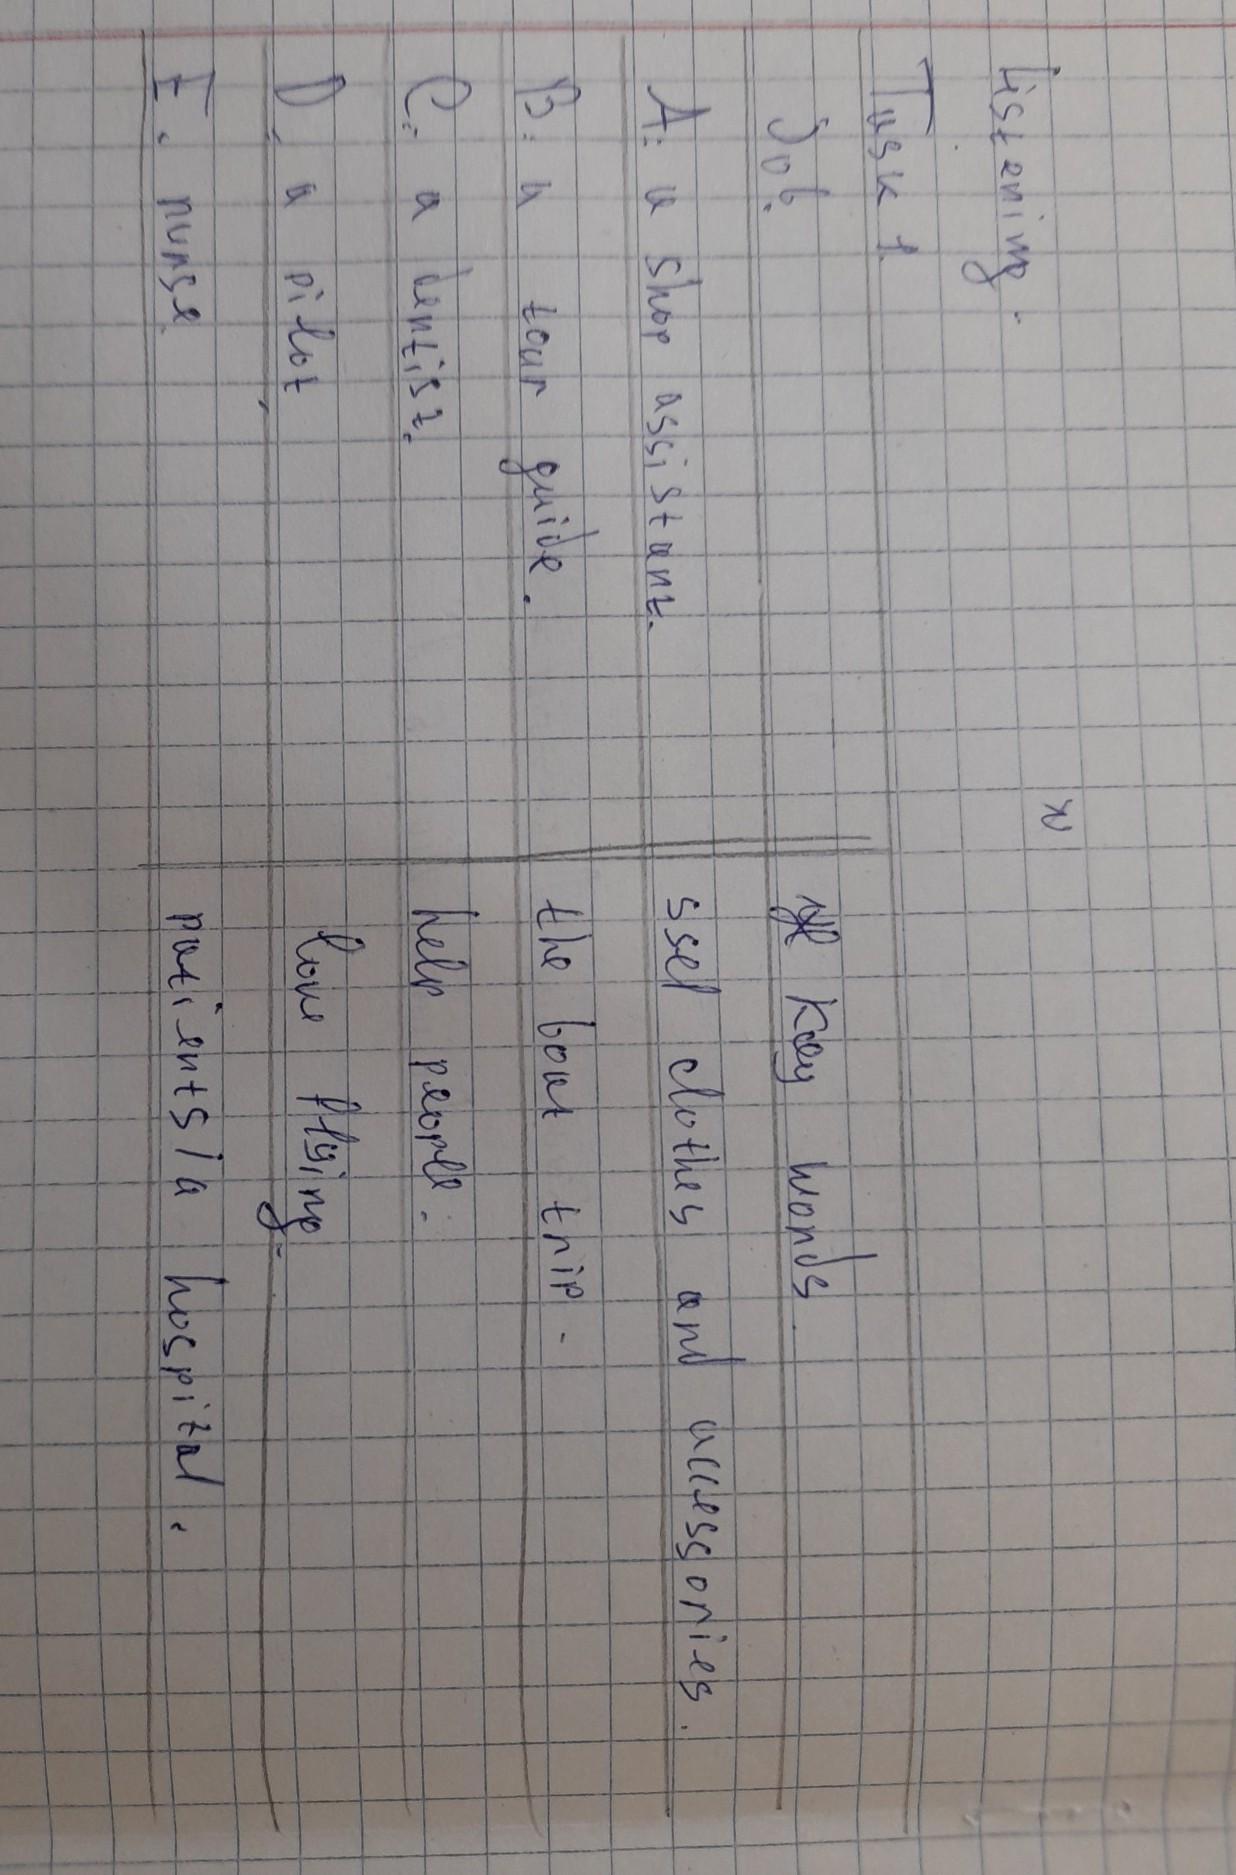 Listening.
Task 1.
Job. Key words.
A: a shop assistant. ssel clothes and accessories.
B: a tour guide. the boat trip.
C: a dentist. help people.
D: a pilot love flying.
E. nurse. patients/a hospital.